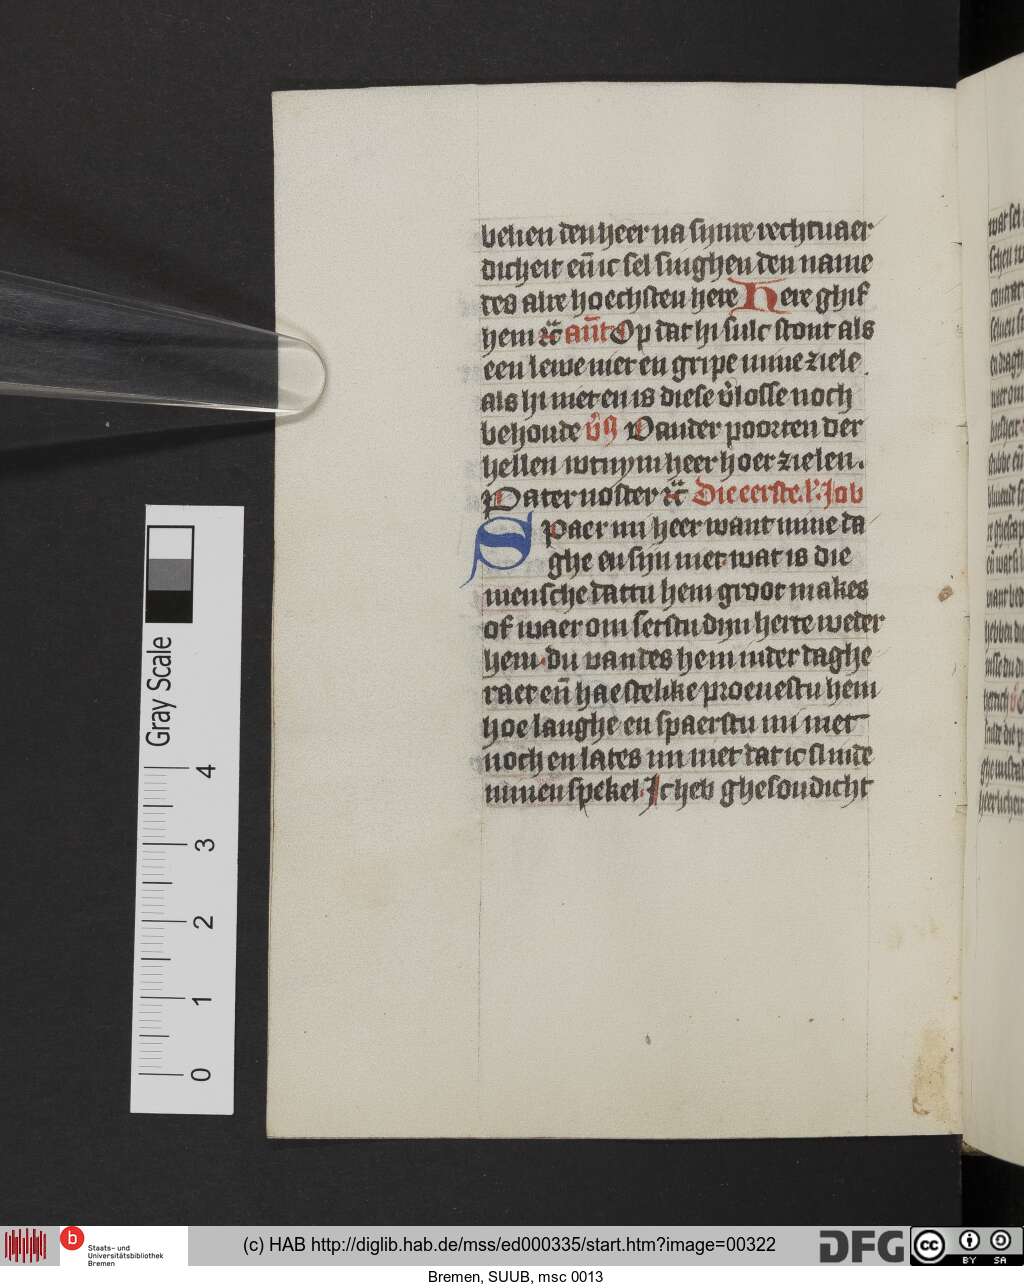 belien den heer na sijnre rechtuaer
dicheit eñ ic sel singhen den name
des alre hoechsten here Here ghif
hem ⁊c̃ añt Op dat hi sulc stont als
een lewe niet en gripe mine ziele
als hi niet en is diese v̓losse noch
behoude v̓s Vander poorten der
hellen wtnym heer hoer zielen.
Pater noster ⁊c̃ Die eerste. l'. Job
Spaer mi heer want mine da
ghe en sijn niet wat is die
mensche dattu hem groot makes
of waer om setstu dijn herte weder
hem. du vandes hem inder daghe
raet eñ haestelike proeuestu hem
hoe langhe en spaerstu mi niet
noch en lates mi niet dat ic slinde
minen spekel. Ic heb ghesondicht
Gray Scale
4
3
2
1
0
b
Staats- und
Universitätsbibliothek
Bremen
(c) HAB http://diglib.hab.de/mss/ed000335/start.htm?image=00322
DFG
cc
BY SA
Bremen, SUUB, msc 0013